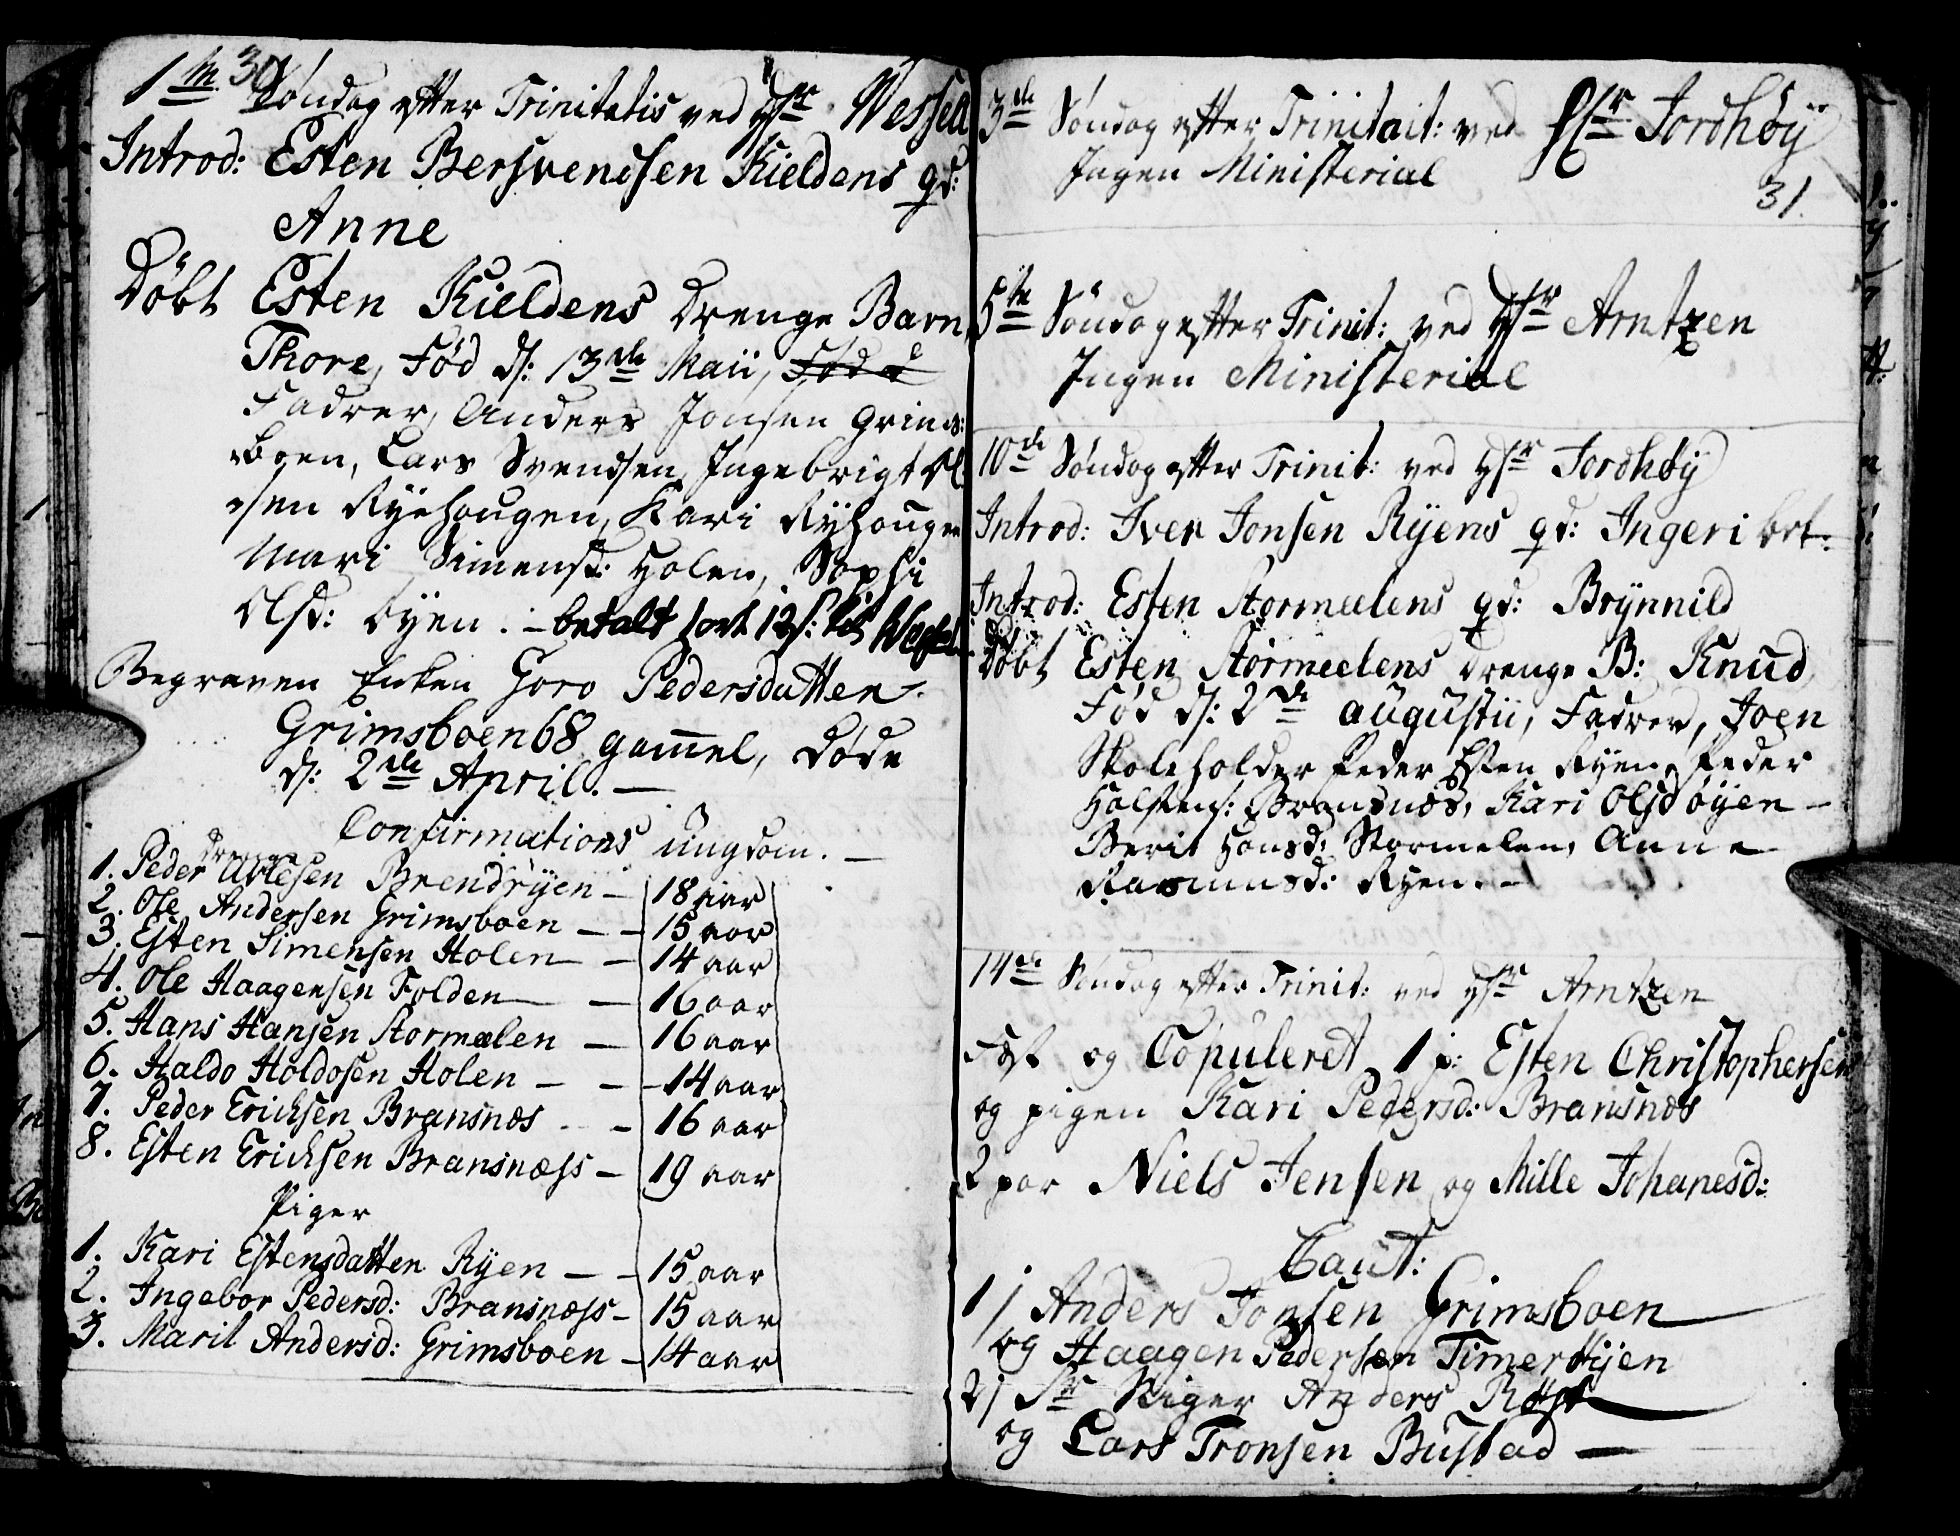 30
1te Søndag efter Trinitatis ved Hr Wessell
Introd: Esten Bersvendsen Kieldens qd:
Anne
Døbt Esten Kieldens Drenge Barn
Thore, Fød d: 13de Maii, Fød d
Fadrer, Anders Jonsen Grims:
boen, Lars Svendsen, Ingebrigt Ol
sen Ryehougen, Kari Ryhougen
Mari Simensd: Holen, Sophi
Olsd: Øyen. - betalt 1 ort 12 s: til Wessel
Begraven Enken Goro Pedersdatter
Grimsboen 68 gammel, Døde
d: 2de April. —
Confirmations Ungdom. —
Drenge
1. Peder Olesen Brendryen — 18 aar
2. Ole Andersen Grimsboen — — 15 aar
3. Esten Simensen Holen — — 14 aar
4. Ole Haagensen Folden — — 16 aar
5. Hans Hansen Stormælen — 16 aar
6. Haldo Holdosen Holen — — 14 aar
7. Peder Ericksen Bransnes - — 16 aar
8. Esten Ericksen Bransnæss — 19 aar
Piger
1. Kari Estensdatten Ryen — — 15 aar
2. Ingebor Pedersd: Bransnæss — 15 aar
3. Marit Andersd: Grimsboen — 14 aar
3de Søndag efter Trinitait: ved Hr Jordhøÿ
Ingen Ministerial
31.
5te Søndag efter Trinit: ved Hr Arntzen
Ingen Ministerial
10de Søndag efter Trinit: ved Hr Jordhøÿ
Introd: Iver Jonsen Rÿens qd: Ingeri bet:
Introd: Esten Stormælens qd: Brÿnnild
Døbt Esten Stormælens Drenge B: Knud
Fød d: 2de Augustii, Fadrer, Joen
Skoleholder Peder Esten Ryen, Peder
Halstens: Bransnes, Kari Olsd Øyen —
Berit Hansd: Stormelen, Anne
Rasmusd: Ryen. —
14de Søndag efter Trinit: ved Hr Arntzen
Fæst og Copuleret 1 p: Esten Christophersen
og pigen Kari Pedersd: Bransnes
2 par Niels Jensen og Mille Johanesd:
Caut:
1/ Anders Jonsen Grimsboen
og Haagen Pedersen Timerøÿen
2/ Sr Anders Røst
og Lars Tronsen Bustad —